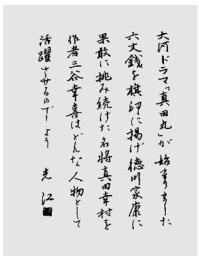 大河ドラマ「真田丸」が始まりました
六文銭を旗印に掲げ徳川家康に
果敢に挑み続けた名将真田幸村を
作者三谷幸喜はどんな人物として
活躍させるのでしょう
光江